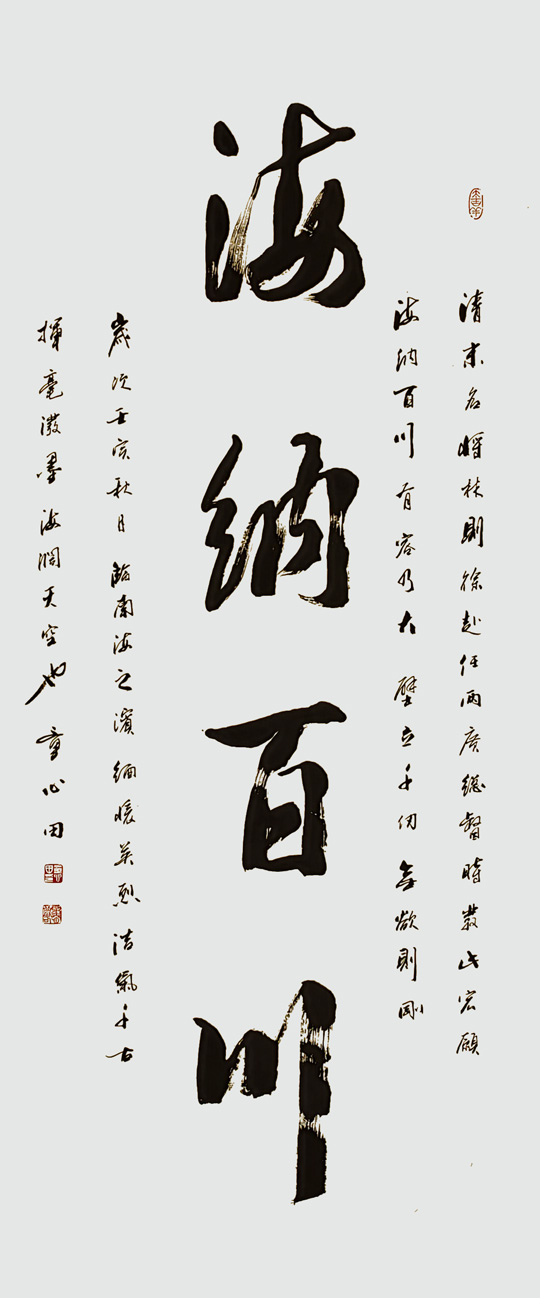 清末名將林則徐赴任兩廣總督時發此宏願
海納百川有容乃大 壁立千仞無欲則剛
海納百川
歲次壬寅秋日臨南海之濱緬懷英烈浩氣千古
揮毫潑墨海闊天空也 童心田